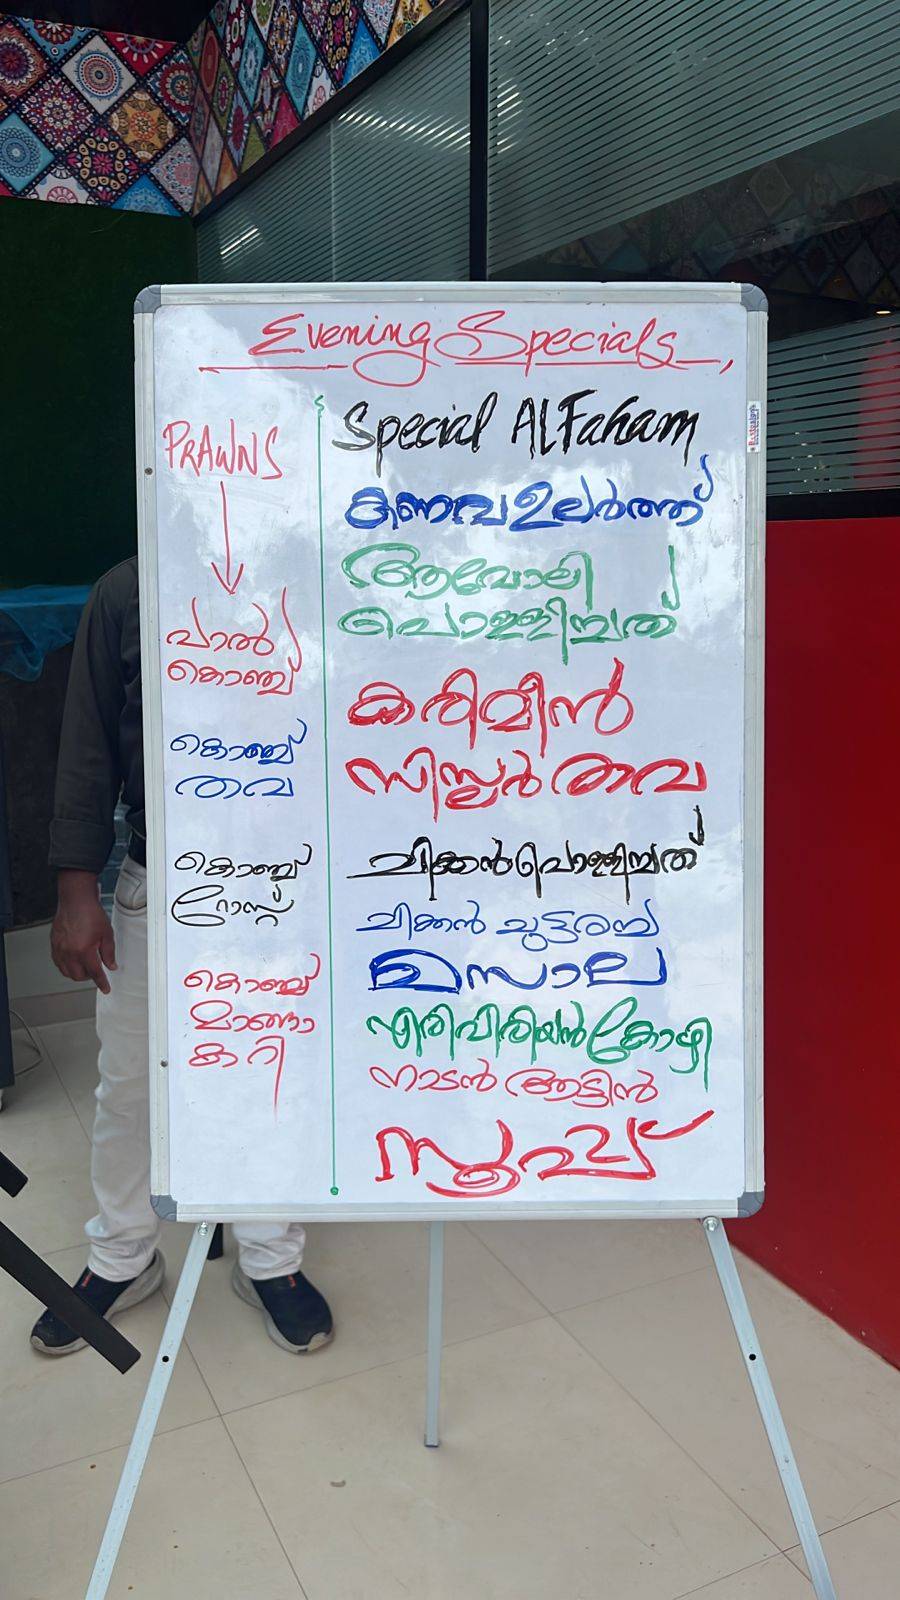 Evening Specials
PRAWNS
പാൽ
കൊഞ്ച്
കൊഞ്ച്
തവ
കൊഞ്ച്
റോസ്റ്റ്
കൊഞ്ച്
മാങ്ങാ
കറി
Special ALFaham
കണവ ഉലർത്ത്
ആവോലി
പൊള്ളിച്ചത്
കരിമീൻ
സിസ്ലർ തവ
ചിക്കൻ പൊള്ളിച്ചത്
ചിക്കൻ ചുട്ടരച്ച
മസാല
എരിവിരിയൻ കോഴി
നാടൻ ആട്ടിൻ
സൂപ്പ്